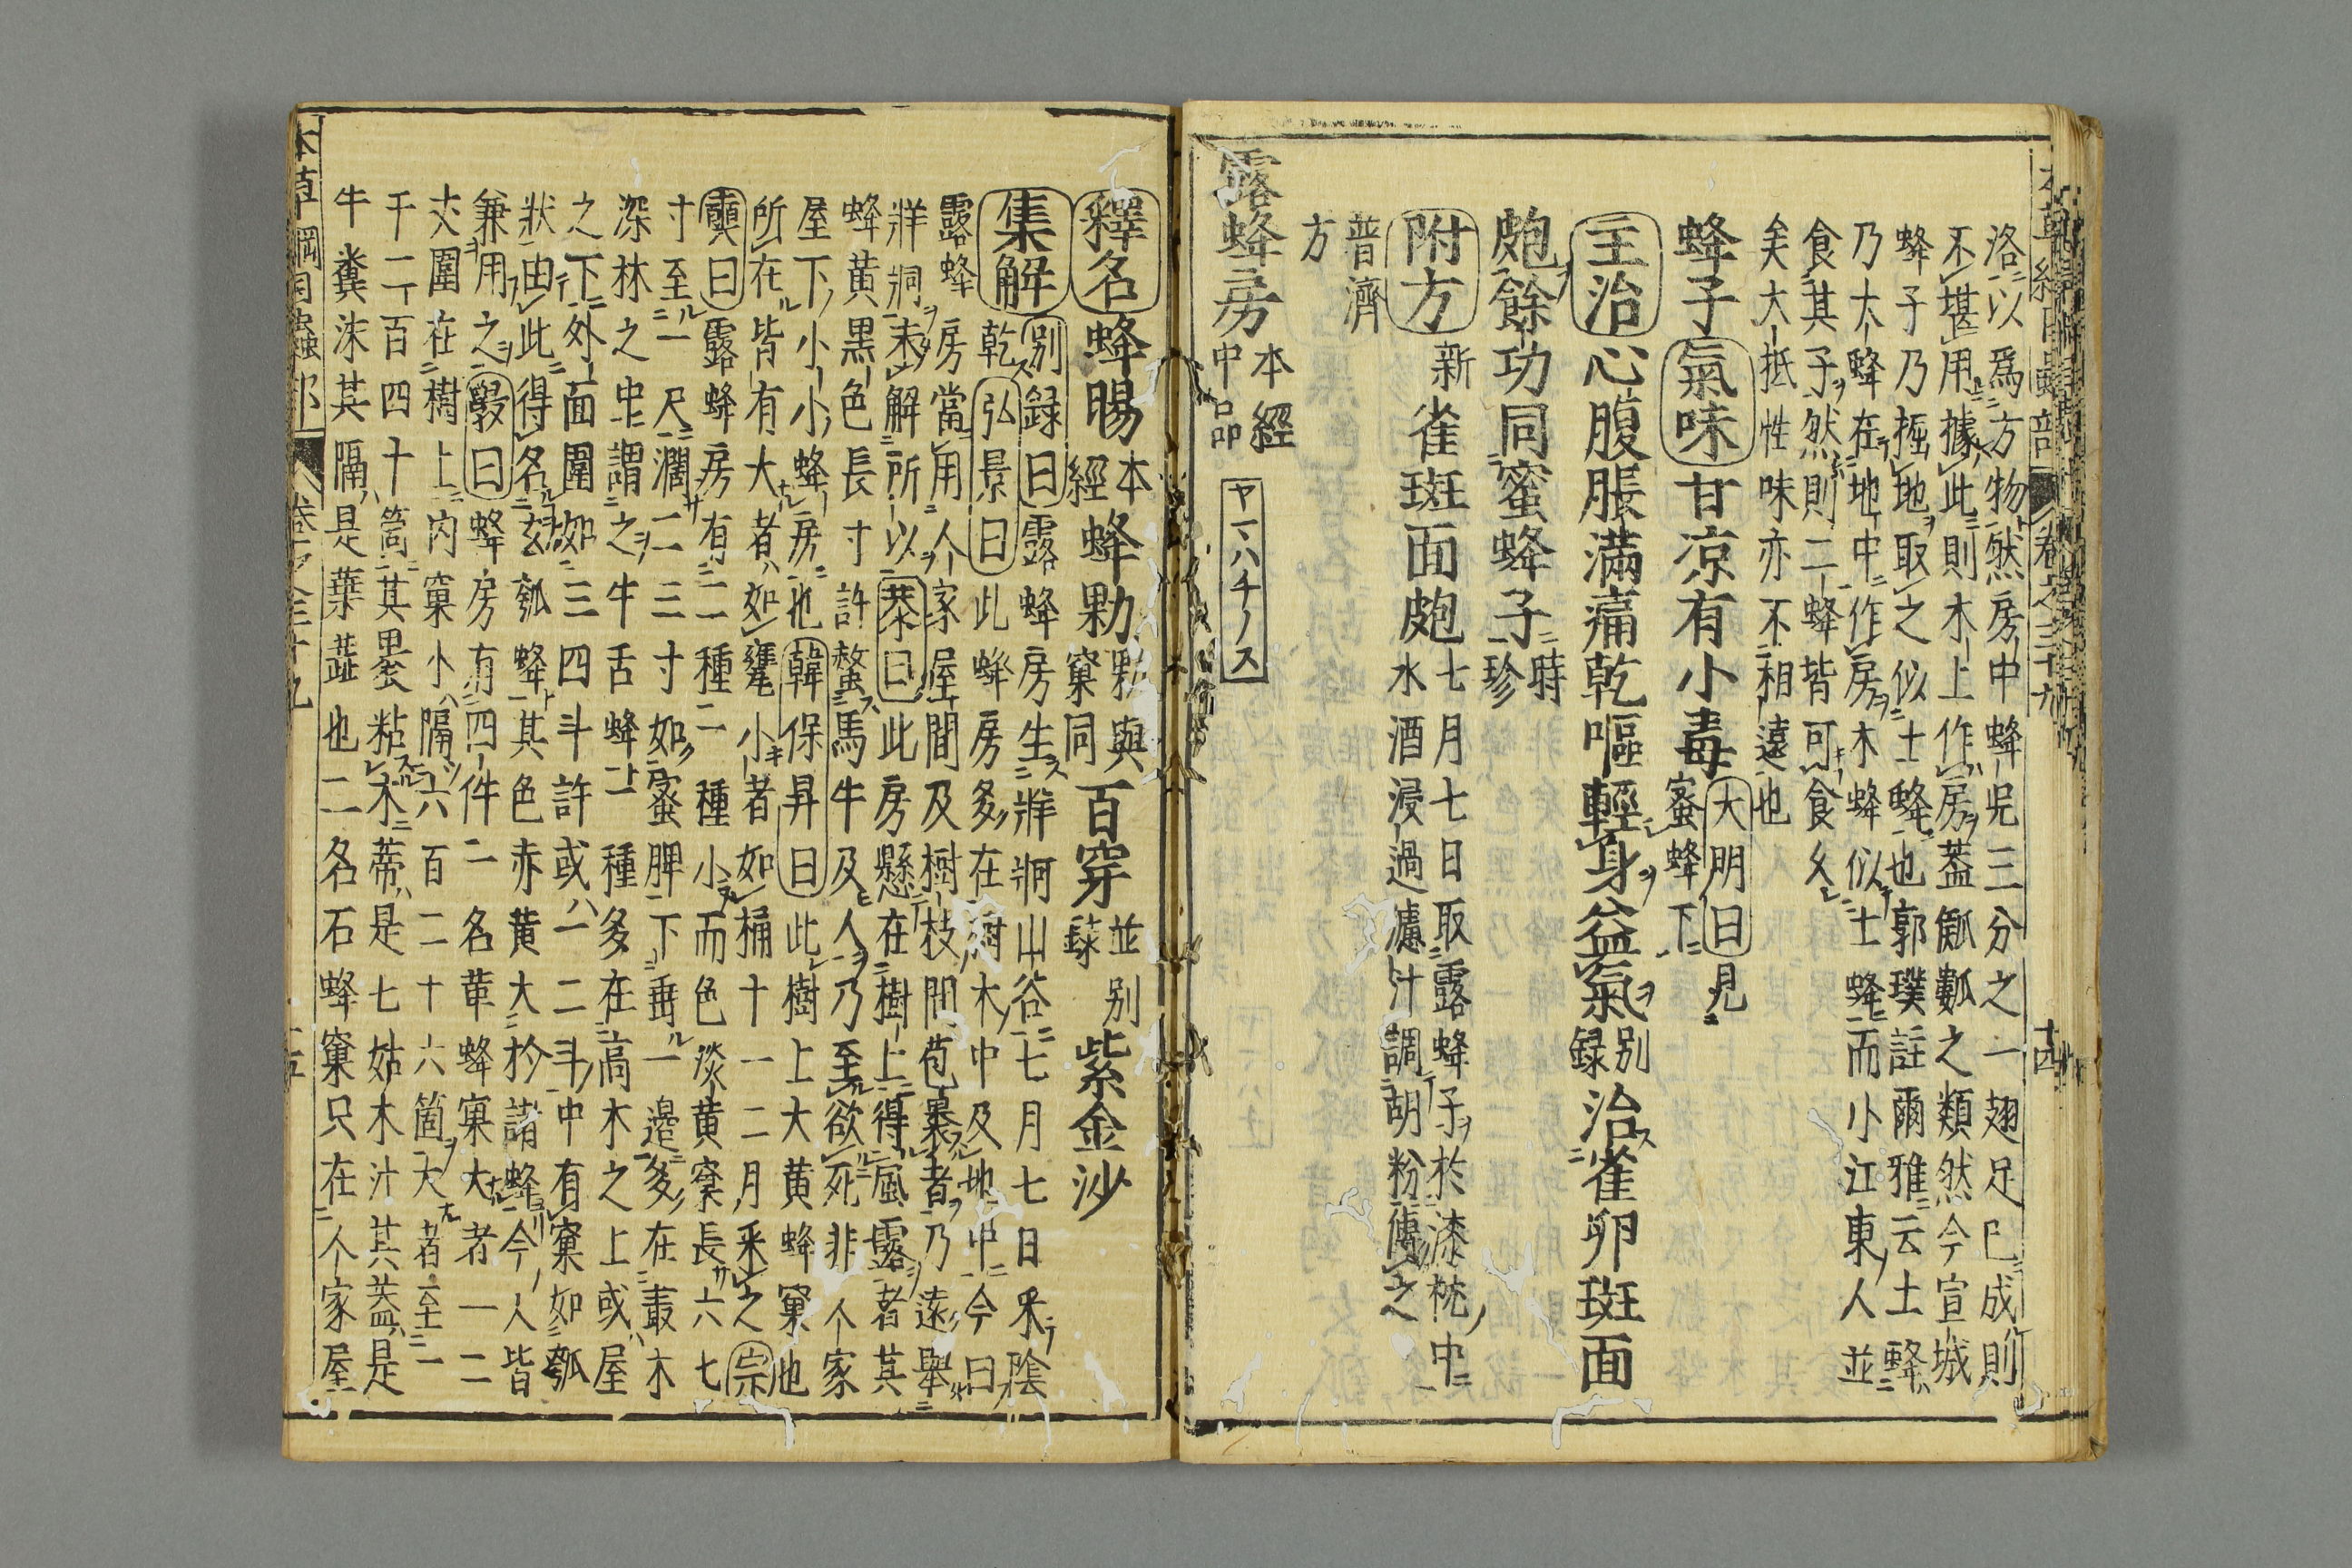 洛以爲方物然房中蜂兒三分之一翅足已成則
不堪用據此則木上作房蓋瓠㼋之類然今宣城
蜂子乃掘地取之似土蜂也郭璞註爾雅云土蜂
乃大蜂在地中作房木蜂似土蜂而小江東人並
食其子然則二蜂皆可食久
矣大抵性味亦不相遠也
蜂子氣味甘凉有小毒大明曰見
蜜蜂下
主治心腹脹滿痛乾嘔輕身益氣别
録治雀卵斑面
皰餘功同蜜蜂子時
珍
附方新雀斑面皰七月七日取露蜂子於漆梡中
水酒浸過濾汁調胡粉傅之
普濟
方
露蜂房本經
中品
ヤマハチノス
釋名蜂腸本
經蜂䴹與
窠同百穿並别
録紫金沙
集解别録曰露蜂房生牂牁山谷七月七日采陰
乾弘景曰此蜂房多在樹木中及地中今曰
露蜂房當用人家屋間及樹枝間苞裹者乃遠舉
牂牁未解所以恭曰此房懸在樹上得風露者其
蜂黄黒色長寸許螫馬牛及人乃至欲死非人家
屋下小小蜂房也韓保昇曰此樹上大黄蜂窠也
所在皆有大者如甕小者如桶十一二月采之宗
奭曰露蜂房有二種一種小而色淡黄窠長六七
寸至一尺濶二三寸如蜜脾下垂一邉多在叢木
深林之中謂之牛舌蜂一種多在高木之上或屋
之下外面圍如三四斗許或一二斗中有窠如瓠
狀由此得名玄瓠蜂其色赤黄大於諸蜂今人皆
兼用之斅曰蜂房有四件一名革蜂窠大者一二
丈圍在樹上内窠小隔六百二十六箇大者至一
千二百四十箇其裹粘木蒂是七姑木汁其蓋是
牛糞沫其隔是葉蘂也二名石蜂窠只在人家屋